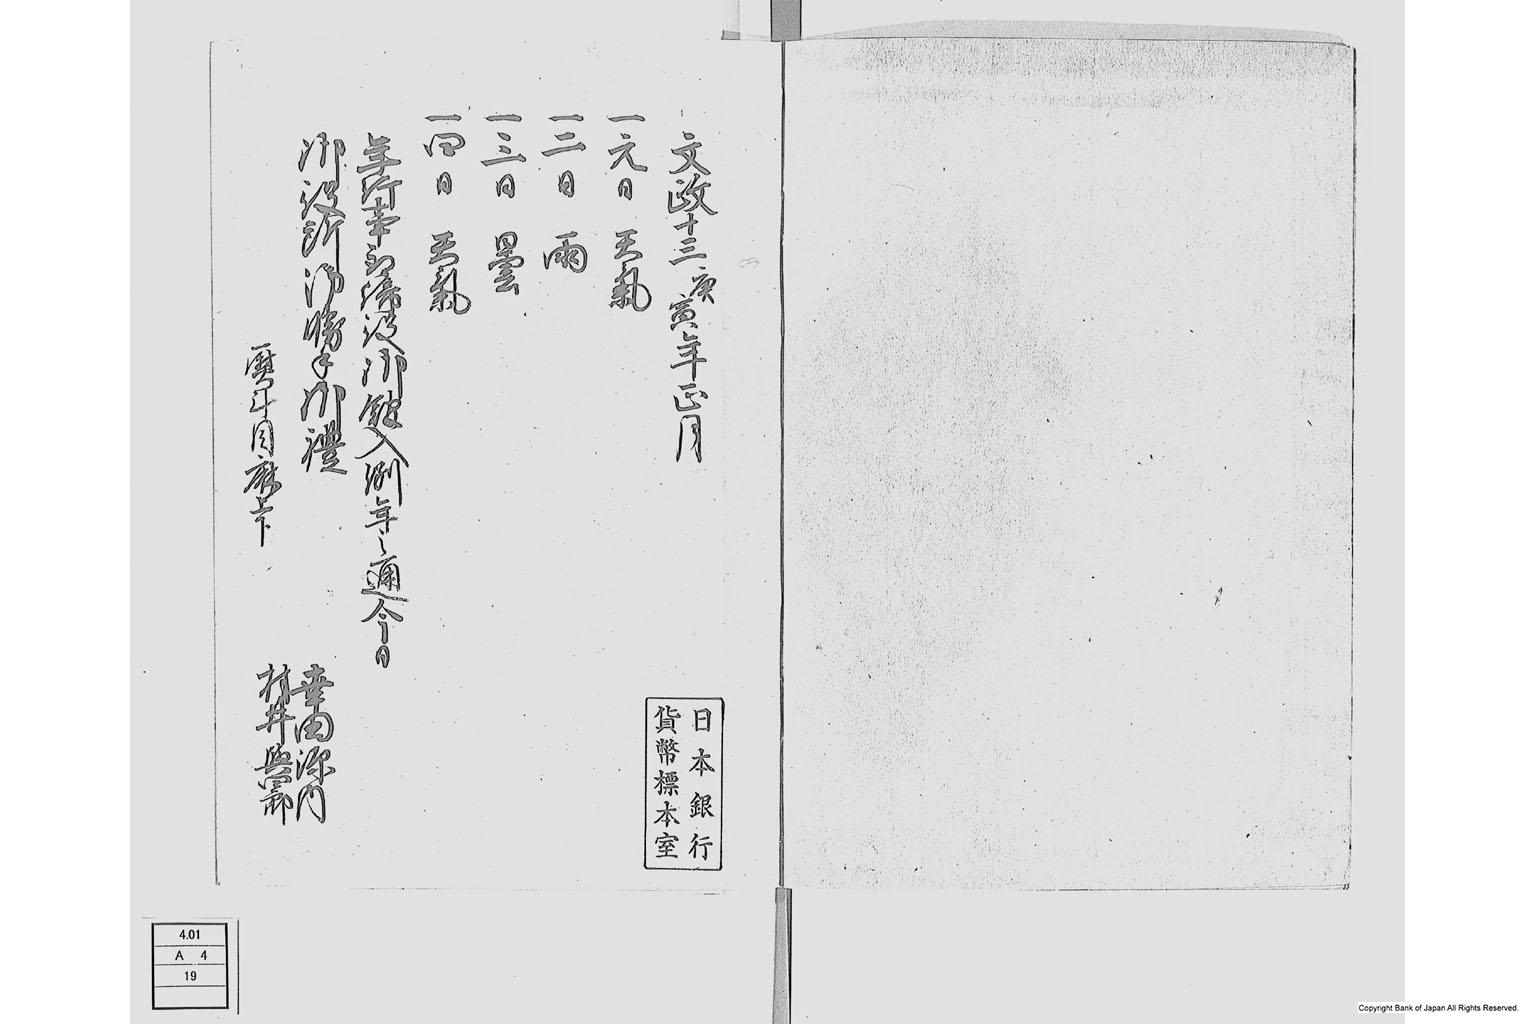 文政十三庚寅年正月
一元日 天氣
一二日 雨
一三日 曇
一四日 天氣
年行事 帰役御館入例年之通今日
御役所御勝手御禮
麻上下
幸田源内
村井與三郎
日本銀行
貨幣標本室
4.01
A 4
19
Copyright Bank of Japan All Rights Reserved.